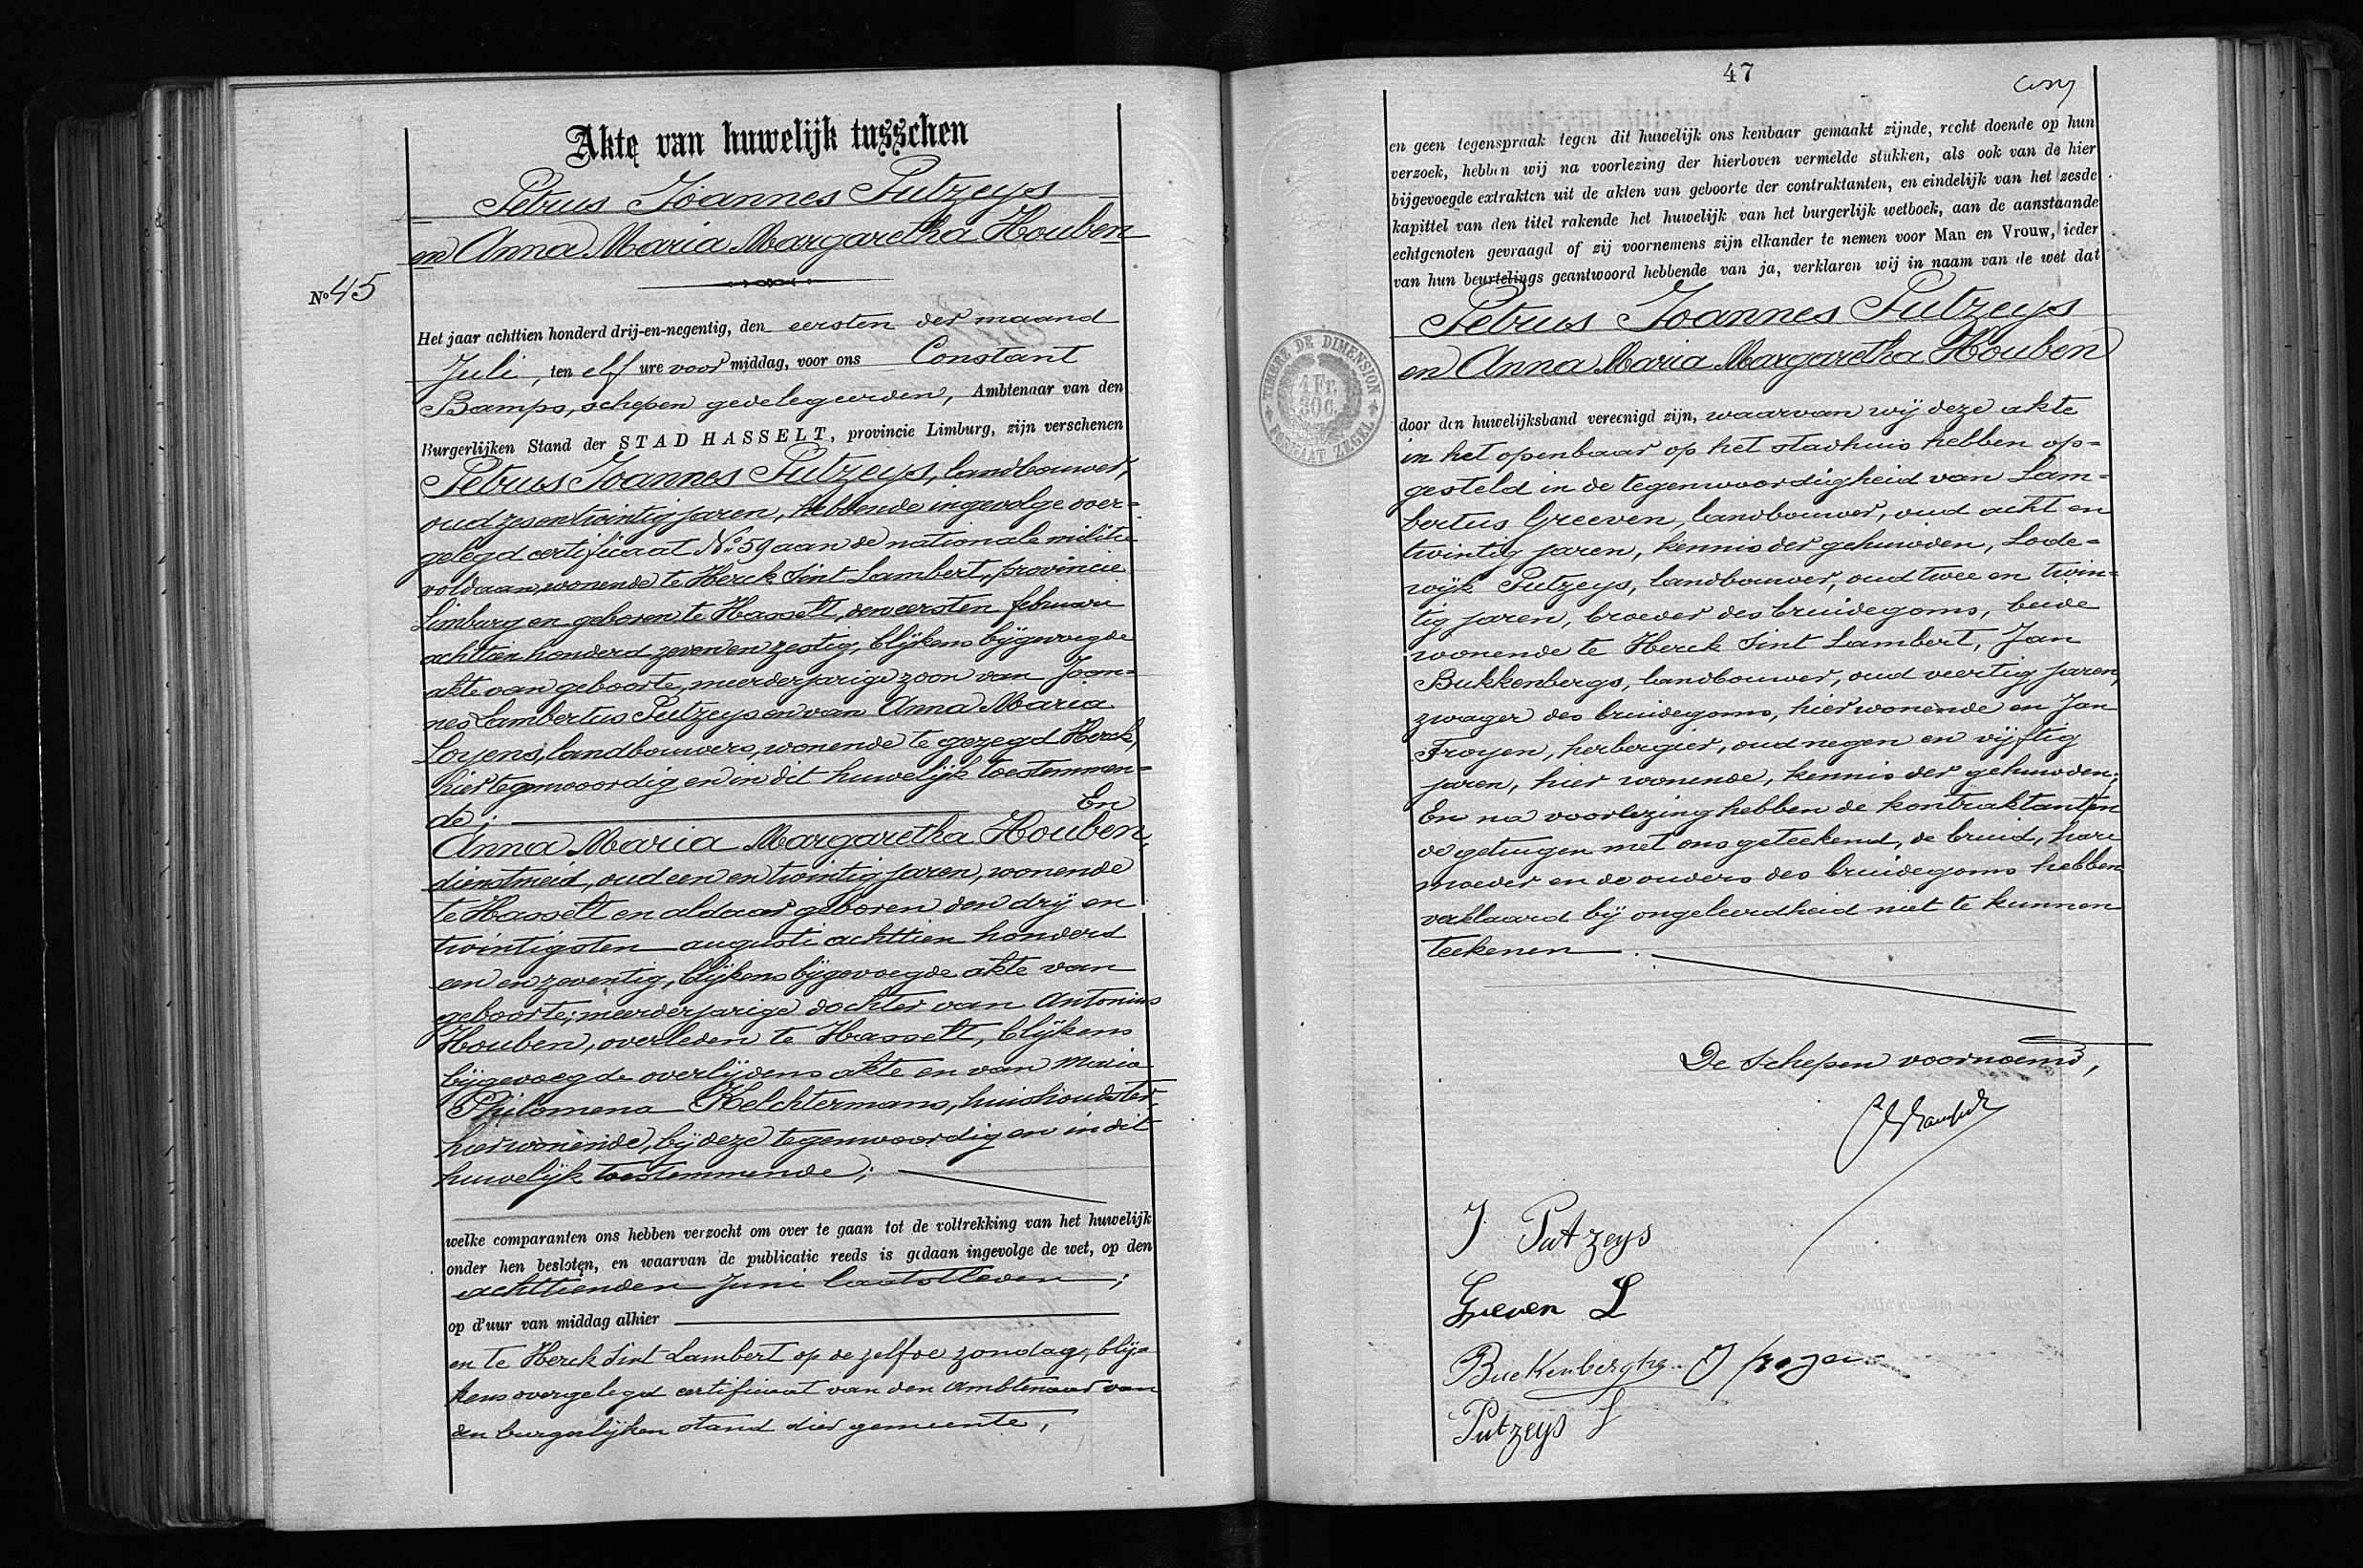 Akte van huwelijk tusschen
Petrus Joannes Putzeys
en Anna Maria Margaretha Houben
No 45
Het jaar achttien honderd drij-en-negentig, den eersten der maand
Juli, ten elf ure voor middag, voor ons Constant
Bamps, schepen gedelegeerden, Ambtenaar van den
Burgerlijken Stand der STAD HASSELT, provincie Limburg, zijn verschenen
Petrus Joannes Putzeys, landbouwer,
oud zesentwintig jaren, hebbende ingevolge over=
gelegd certificaat No 59 aan de nationale militie
voldaan, wonende te Herck Sint Lambert, provincie
Limburg en geboren te Hasselt, den eersten februari
achttien honderd zeven en zestig, blijkens bijgevoegde
akte van geboorte, meerderjarige zoon van Joan=
nes Lambertus Putzeys en van Anna Maria
Loyens, landbouwers, wonende te gezegd Herck,
hier tegenwoordig en in dit huwelijk toestemmen=
de; En
Anna Maria Margaretha Houben,
dienstmeid, oud een en twintig jaren, wonende
te Hasselt en aldaar geboren den drij en
twintigsten augusti achttien honderd
een en zeventig, blijkens bijgevoegde akte van
geboorte; meerderjarige dochter van Antonius
Houben, overleden te Hasselt, blijkens
bijgevoegde overlijdens akte en van Maria
Philomena Kelchtermans, huishoudster,
hier wonende, bij deze tegenwoordig en in dit
huwelijk toestemmende;
welke comparanten ons hebben verzocht om over te gaan tot de voltrekking van het huwelijk
onder hen besloten, en waarvan de publicatie reeds is gedaan ingevolge de wet, op den
achttienden Juni laatstleden;
op d'uur van middag alhier
en te Herck Sint Lambert op de zelfde zondag, blij=
kens overgelegd certificaat van den Ambtenaar van
den burgerlijken stand dier gemeente,
47
en geen tegenspraak tegen dit huwelijk ons kenbaar gemaakt zijnde, recht doende op hun
verzoek, hebben wij na voorlezing der hierboven vermelde stukken, als ook van de hier
bijgevoegde extrakten uit de akten van geboorte der contraktanten, en eindelijk van het zesde
kapittel van den titel rakende het huwelijk van het burgerlijk wetboek, aan de aanstaande
echtgenoten gevraagd of zij voornemens zijn elkander te nemen voor Man en Vrouw, ieder
van hun beurtelings geantwoord hebbende van ja, verklaren wij in naam van de wet dat
Petrus Joannes Putzeys
en Anna Maria Margaretha Houben
TIMBRE DE DIMENSION
1 Fr.
30 C.
FORMAAT ZEGEL
door den huwelijksband vereenigd zijn, waarvan wij deze akte
in het openbaar op het stadhuis hebben op=
gesteld in de tegenwoordigheid van Lam=
bertus Greeven, landbouwer, oud acht en
twintig jaren, kennis der gehuwden, Lode=
wijk Putzeys, landbouwer, oud twee en twin=
tig jaren, broeder des bruidegoms, beide
wonende te Herck Sint Lambert, Jan
Bukkenbergs, landbouwer, oud veertig jaren,
zwager des bruidegoms, hier wonende en Jan
Froyen, herbergier, oud negen en vijftig
jaren, hier wonende, kennis der gehuwden;
En na voorlezing hebben de kontraktanten
de getuigen met ons geteekend, de bruid, hare
moeder en de ouders des bruidegoms hebben
verklaard bij ongeleerdheid niet te kunnen
teekenen.
De Schepen voornoemd,
J Putzeys
Greven L
Buekenberghs J froyen
Putzeys L